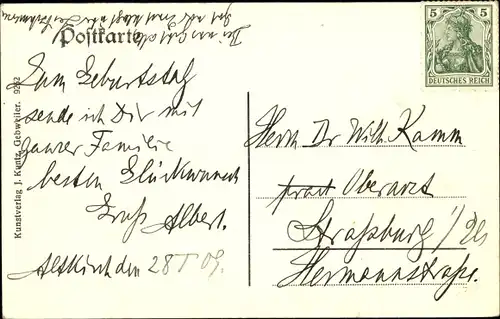 Postkarte
5 5
DEUTSCHES REICH
Zum Geburtstag
sende ich Dir mit
ganzer Familie
besten Glückwunsch
Gruß Albert.
Altkirch den 28 I 09.
Herrn Dr Wilh. Kamm
pract Oberarzt
Straßburg i/Els
Hermannstraße.
Kunstverlag J. Kuntz, Gebweiler. 9262